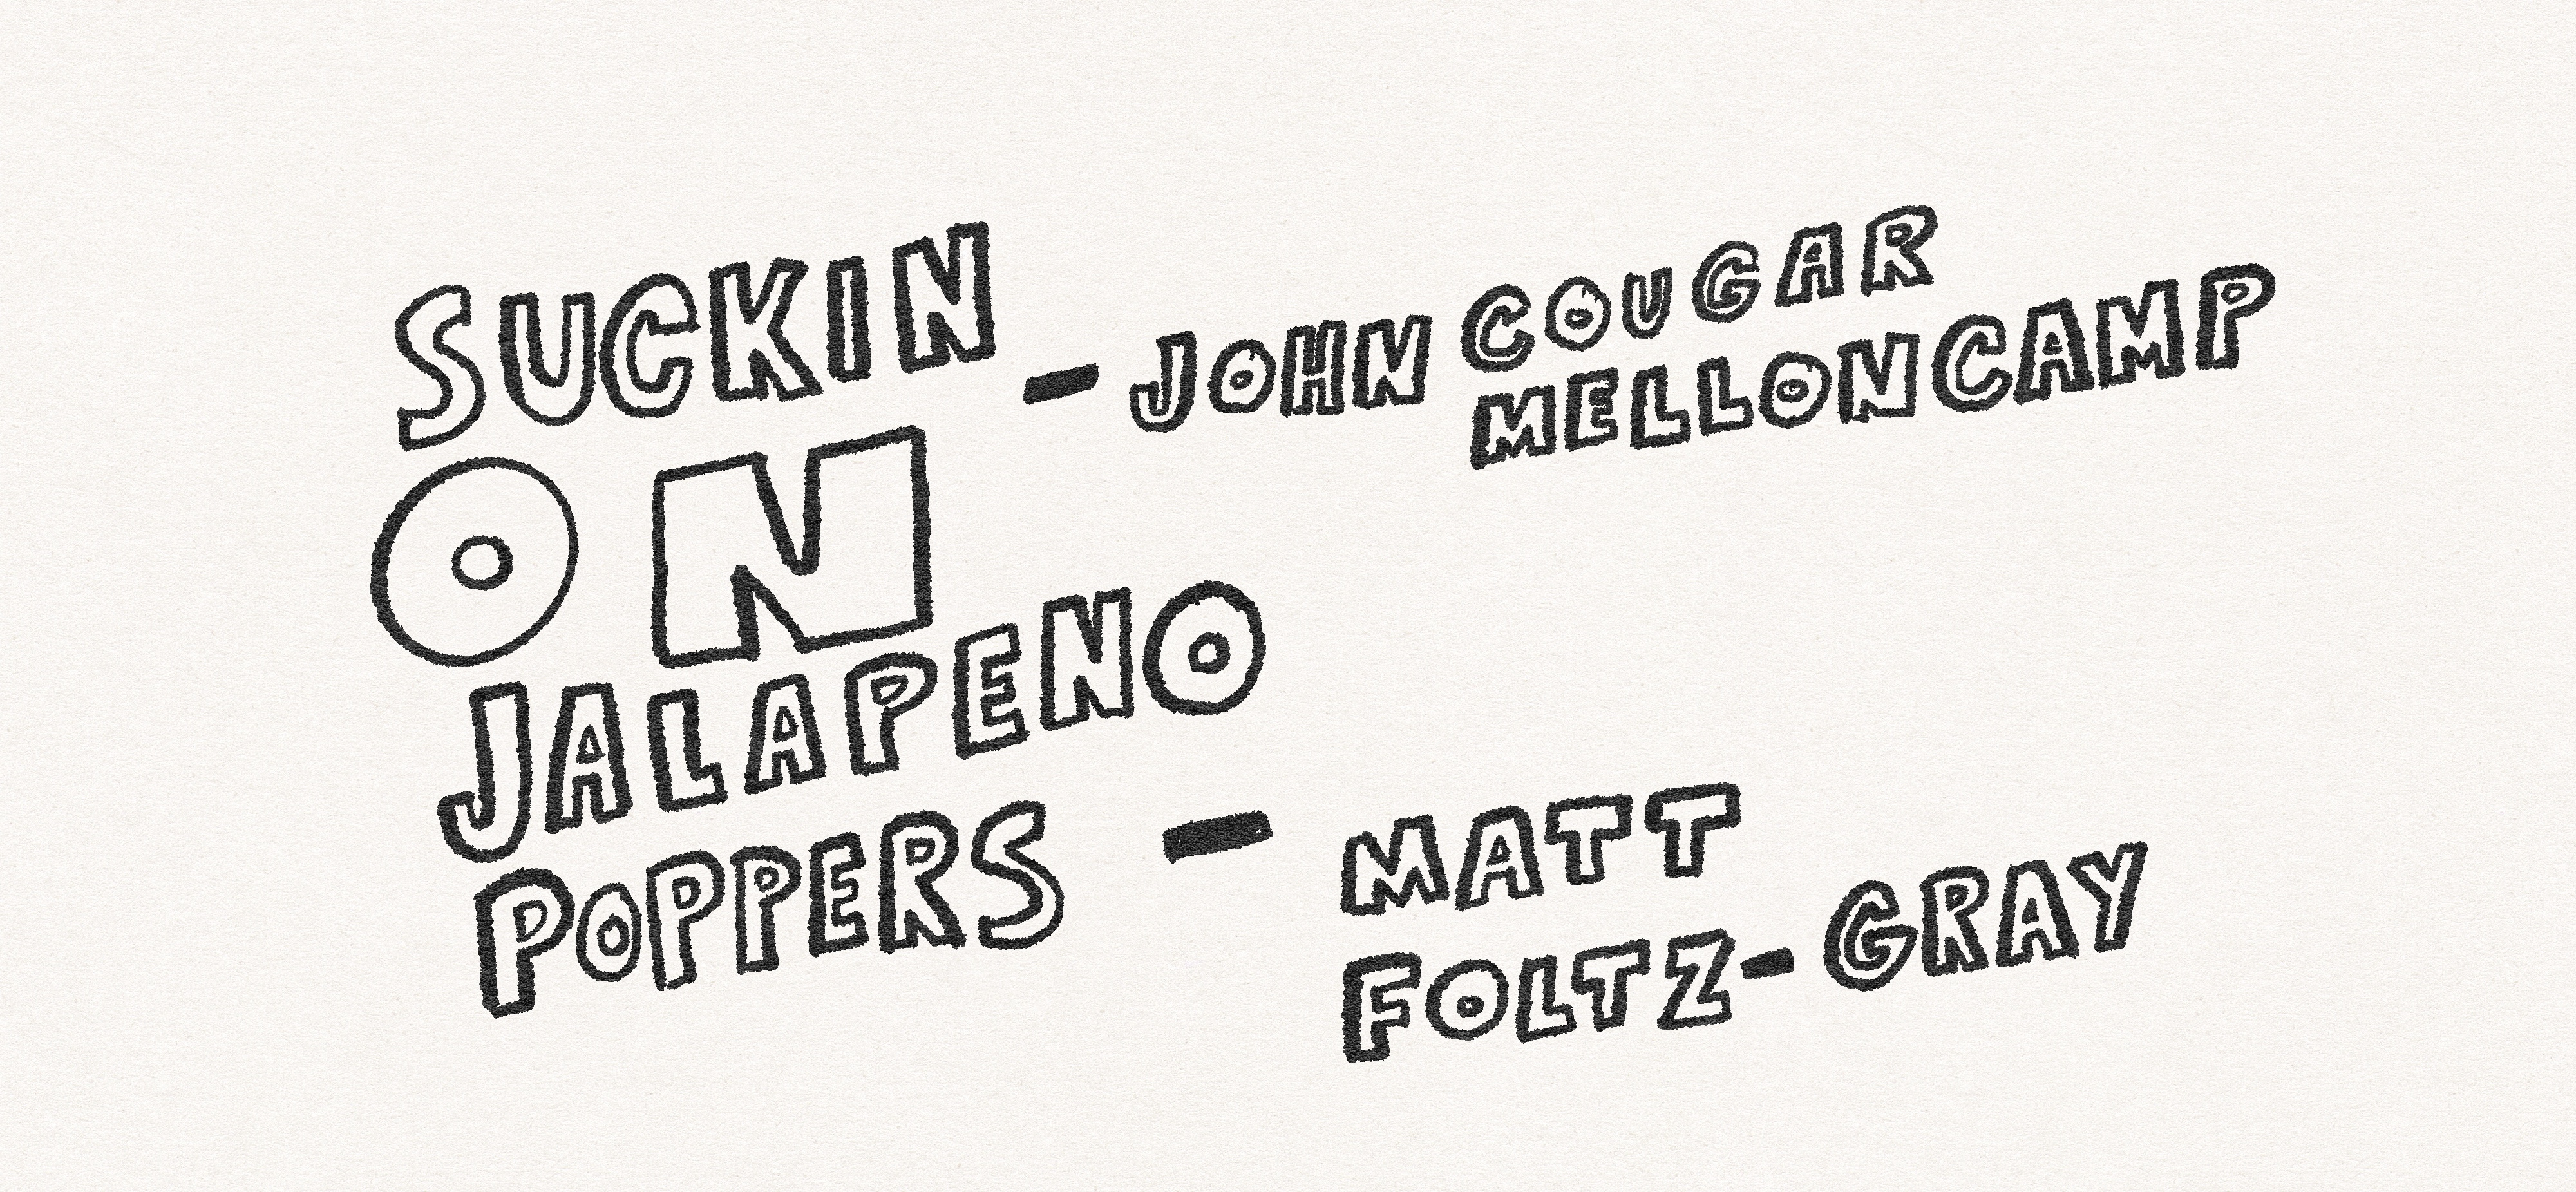 SUCKIN - JOHN COUGAR
MELLONCAMP
ON
JALAPENO
POPPERS - MATT
FOLTZ-GRAY